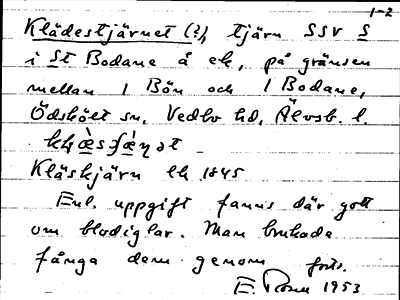 1-2
Klädestjärnet (?), tjärn SSV S
i St Bodane å ek, på gränsen
mellan 1 Bön och 1 Bodane,
Ödskölt sn, Vedbo hd, Älvsb. l.
Kläskjärn lk 1845
Enl. uppgift fanns där gott
om blodiglar. Man brukade
fånga dem genom forts.
E. 1953